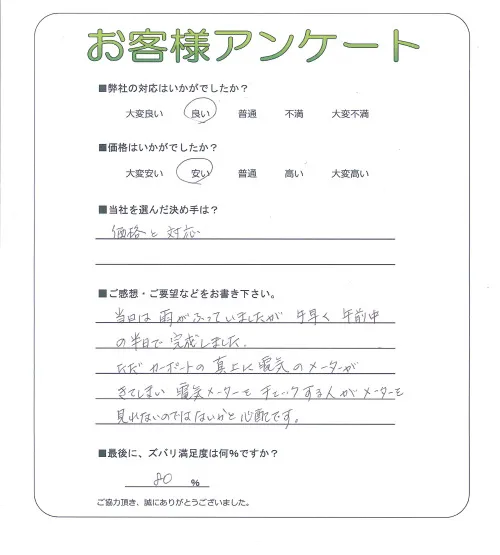 お客様アンケート
■弊社の対応はいかがでしたか？
大変良い 良い 普通 不満 大変不満
■価格はいかがでしたか？
大変安い 安い 普通 高い 大変高い
■当社を選んだ決め手は？
価格と対応
■ご感想・ご要望などをお書き下さい。
当日は雨がふっていましたが 手早く 午前中
の半日で完成しました.
ただカーポートの真上に電気のメーターが
きてしまい 電気メーターをチェックする人がメーターを
見れないのではないかと心配です。
■最後に、ズバリ満足度は何％ですか？
80 %
ご協力頂き、誠にありがとうございました。